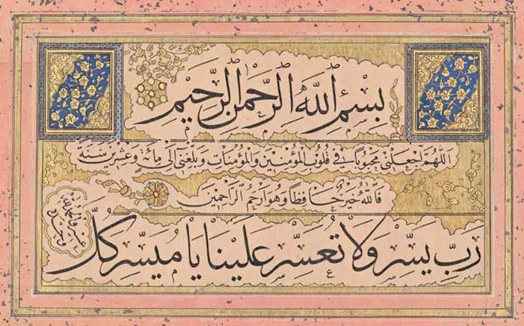 بسم الله الرحمن الرحيم
اللهم اجعلني محبوبا في قلوب المؤمنين والمؤمنات وبلغني إلى مائة وعشرين سنة
فالله خير حافظا وهو أرحم الراحمين
رب يسر ولا تعسر علينا يا ميسر كل
عسير